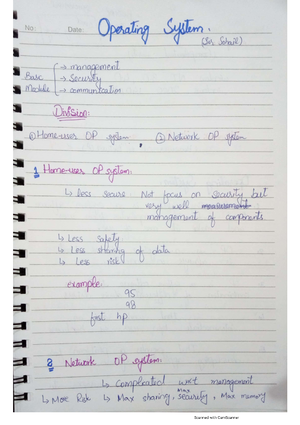 No: Date: Operating System.
(Sir Sohail)
→ management
Basic → Security
Module → communication
Division:
① Home-user OP system ② Network OP system
1 Home-user OP system:
↳ Less secure Not focus on security but
very well management of components
↳ Less safety
↳ Less sharing of data
↳ Less risk
example
95
98
first hp
2 Network OP system:
↳ Complicated unit management
↳ More Risk ↳ Max sharing, Max security, Max memory
Scanned with CamScanner